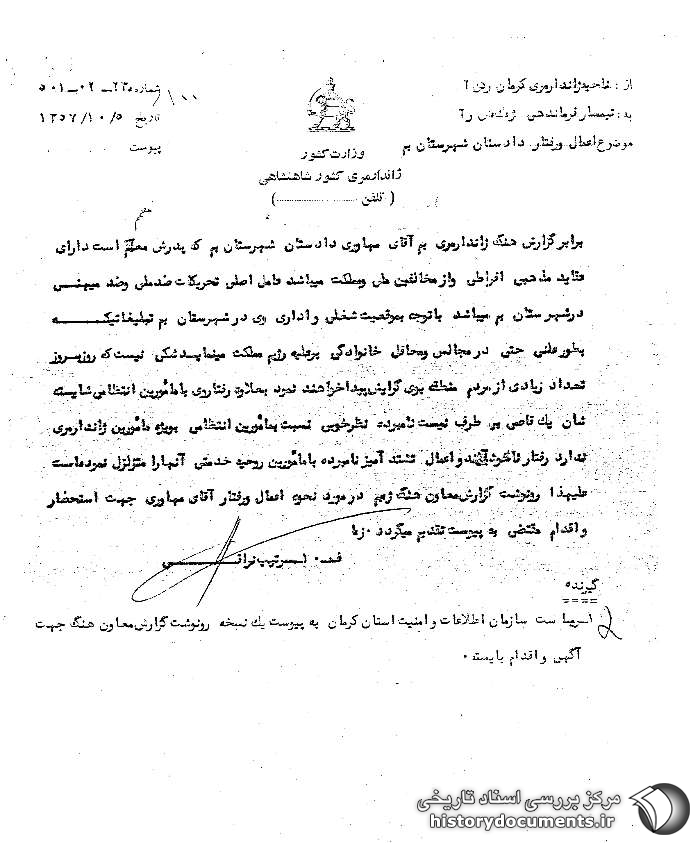 از : ناحیه ژاندارمری کرمان رکن ۲
به : تیمسار فرماندهی ژ ک ش ر۲
موضوع اعمال ورفتار دادستان شهرستان بم
شماره ۲۳۵-۰۲-۵۰۱
تاریخ ۱۳۵۷/۱۰/۵
پیوست
وزارت کشور
ژاندارمری کشور شاهنشاهی
( تلفن ......................)
برابر گزارش هنگ ژاندارمری بم آقای مهاوری دادستان شهرستان بم که پدرش معلم است دارای
عقاید مذهبی افراطی واز مخالفین ملی ومملکت میباشد عامل اصلی تحریکات ضد ملی وضد میهنی
در شهرستان بم میباشد باتوجه بموقعیت شغلی واداری وی در شهرستان بم تبلیغاتیکه
بطور علنی حتی در مجالس ومحافل خانوادگی برعلیه رژیم مملکت مینماید شکی نیست که روز بروز
تعداد زیادی از مردم منطقه بوی گرایش پیدا خواهند نمود بعلاوه رفتار وی با مأمورین انتظامی شایسته
شان یک قاضی بی طرف نیست نامبرده نظر خوبی نسبت بمأمورین انتظامی بویژه مأمورین ژاندارمری
ندارد رفتار واعمال تشدد آمیز نامبرده با مأمورین روحیه خدمتی آنها را متزلزل نموده است
علیهذا رونوشت گزارش معاون هنگ ژبم در مورد نحوه اعمال ورفتار آقای مهاوری جهت استحضار
و اقدام مقتضی به پیوست تقدیم میگردد .
سرتیپ نراقی
گیرنده
ریاست سازمان اطلاعات وامنیت استان کرمان به پیوست یک نسخه رونوشت گزارش معاون هنگ جهت
آگهی واقدام بایسته .
مرکز بررسی اسناد تاریخی
historydocuments.ir